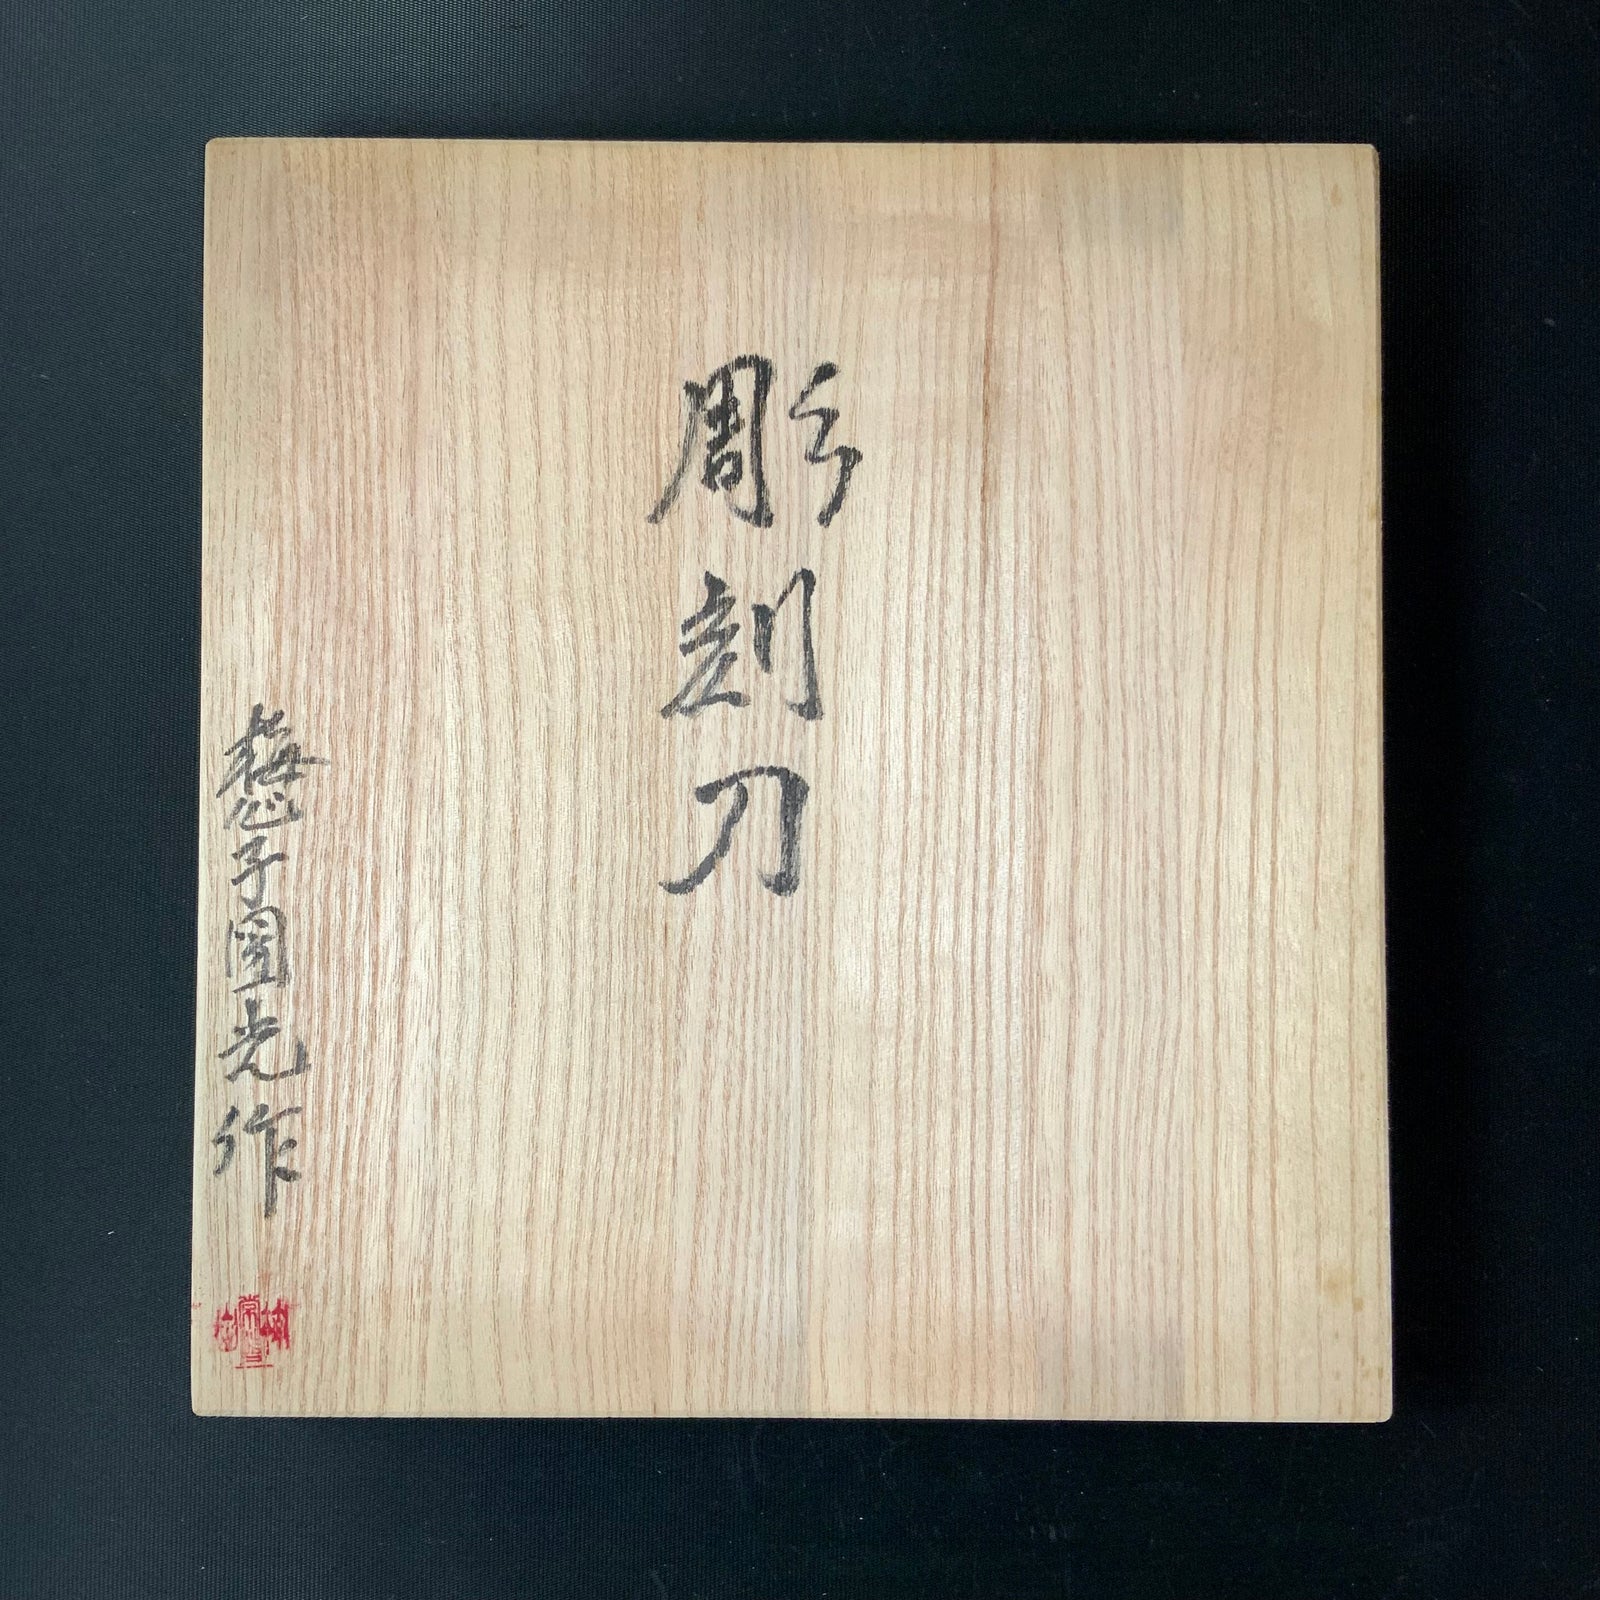 彫刻刀
梅心子國光作